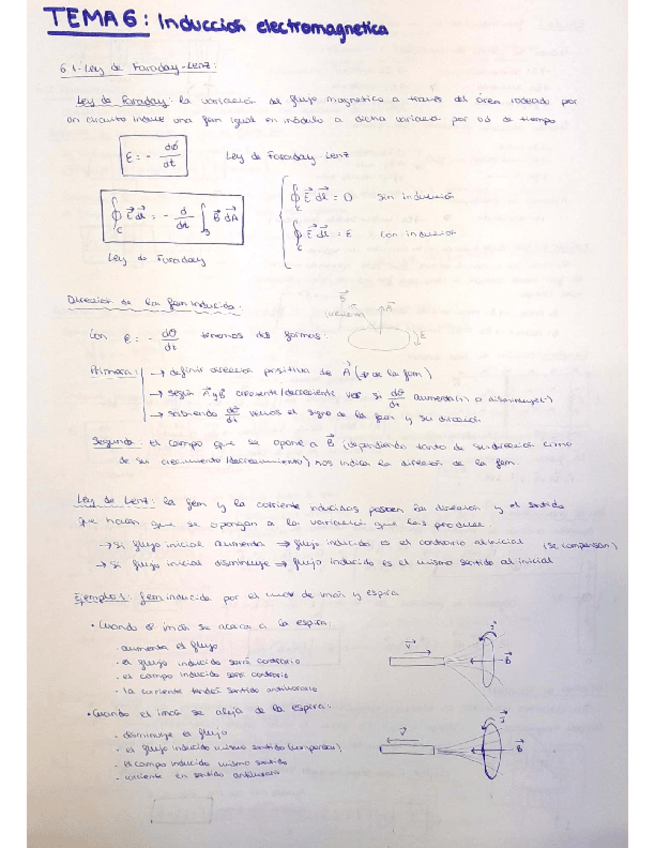 TEMA 6: Inducción electromagnética
6.1.- Ley de Faraday-Lenz:
Ley de Faraday: la variación del flujo magnético a través del área rodeada por
un circuito induce una fem igual en módulo a dicha variación por ud de tiempo
ε = - dφ/dt   Ley de Faraday-Lenz
∮c E⃗ dl⃗ = - d/dt ∫s B⃗ dA⃗
∮c E⃗ dl⃗ = 0   sin inducción
∮c E⃗ dl⃗ = ε   con inducción
Ley de Faraday
Dirección de la fem inducida:
Con ε = - dφ/dt tenemos dos formas:
B⃗
A⃗
ε
Primera: → definir dirección positiva de A⃗ ( de la fem)
→ según A⃗ y B⃗ creciente/decreciente ver si dφ/dt aumenta(+) o disminuye(-)
→ sabiendo dφ/dt vemos el signo de la fem y su dirección
Segunda: El campo que se opone a B⃗ (dependiendo tanto de su dirección como
de su crecimiento/decrecimiento) nos indica la dirección de la fem.
Ley de Lenz: la fem y la corriente inducidas poseen la dirección y el sentido
que hacen que se opongan a la variación que las produce.
→ si flujo inicial aumenta ⇒ flujo inducido es el contrario al inicial (se compensan)
→ si flujo inicial disminuye ⇒ flujo inducido es el mismo sentido al inicial
Ejemplo 1: fem inducida por el de imán y espira
• Cuando el imán se acerca a la espira:
- aumenta el flujo
- el flujo inducido será contrario
- el campo inducido será contrario
- la corriente tendrá sentido antihorario
v⃗
B⃗
• Cuando el imán se aleja de la espira:
- disminuye el flujo
- el flujo inducido mismo sentido (compensar)
- el campo inducido mismo sentido
- corriente en sentido
v⃗
B⃗